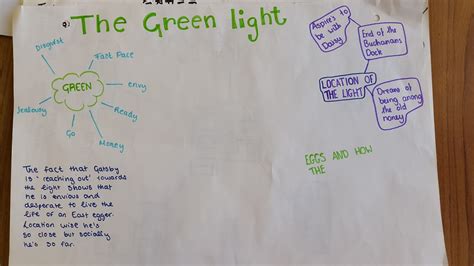 The Green light
Disgust
Fast Pace
envy
GREEN
Jealousy
Ready
Go
Money
The fact that Gatsby
is 'reaching out' towards
the light shows that
he is envious and
desperate to live the
life of an East egger.
Location wise he's
so close but socially
he's so far.
Aspires to
be with
Daisy
End of the
Buchanans
Dock
LOCATION OF
THE LIGHT
Dreams of
being among
the old
money
EGGS AND HOW
THE